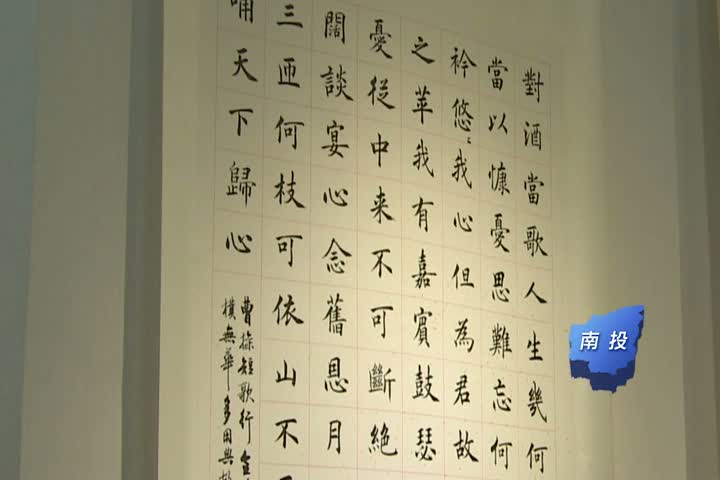 對酒當歌人生幾何
當以慷憂思難忘何
衿悠〻我心但為君故
之苹我有嘉賓鼓瑟
憂從中来不可斷絶
闊談宴心念舊恩月
三匝何枝可依山不
哺天下歸心
曹操短歌行
樸無華多用典
南投